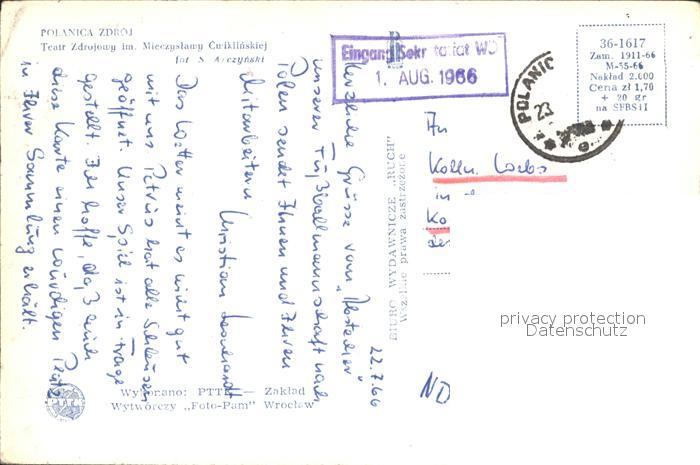 POLANICA ZDRÓJ
Teatr Zdrojowy im. Mieczysławy Ćwiklińskiej
fot S. Arczyński
Eingang Sekretariat WD
1. AUG. 1966
36-1617
Zam. 1911-66
M-55-66
Nakład 2.000
Cena zł 1,70
+ 20 gr
na SFBSiI
POLANIC
23
22.7.66
Herzliche Grüsse vom
unserer Fußballmannschaft nach
Polen sendet Ihnen und Ihren
Mitarbeitern
Christian
Das Wetter meint es nicht gut
mit uns Petrus hat alle Schleusen
geöffnet. Unser Spiel ist in Frage
gestellt. Ich hoffe, daß auch
diese Karte einen würdigen Platz
in Ihrer Sammlung erhält.
BIURO WYDAWNICZE „RUCH"
Wszelkie prawa zastrzeżone
An
Kolln.
in
Ko
der
ND
Wykonano: PTTK — Zakład
Wytwórczy „Foto-Pam" Wrocław
privacy protection
Datenschutz